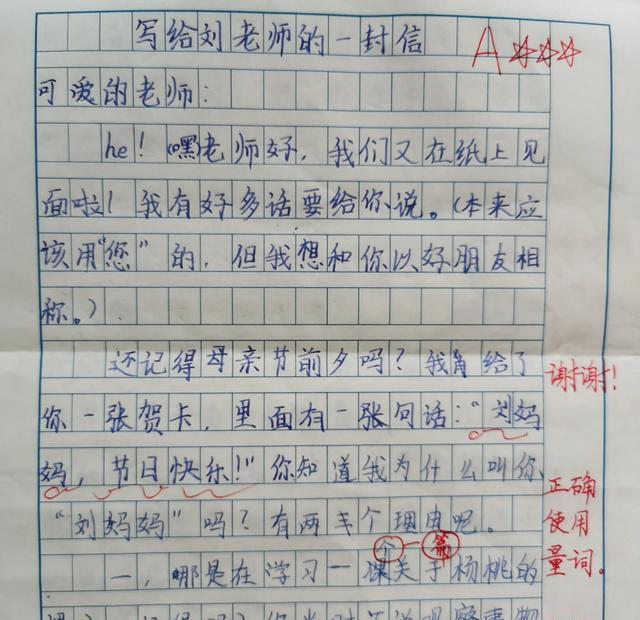 写给刘老师的一封信
A☆☆☆
可爱的老师：
he！(嘿)老师好，我们又在纸上见
面啦！我有好多话要给你说。(本来应
该用“您”的，但我想和你以好朋友相
称。)
还记得母亲节前夕吗？我给了
谢谢！
你一张贺卡，里面有一张句话：“刘妈
妈，节日快乐！”你知道我为什么叫你
“刘妈妈”吗？有两个理由呢。
正确
使用
量词。
个 篇
一，那是在学习一课关于杨桃的